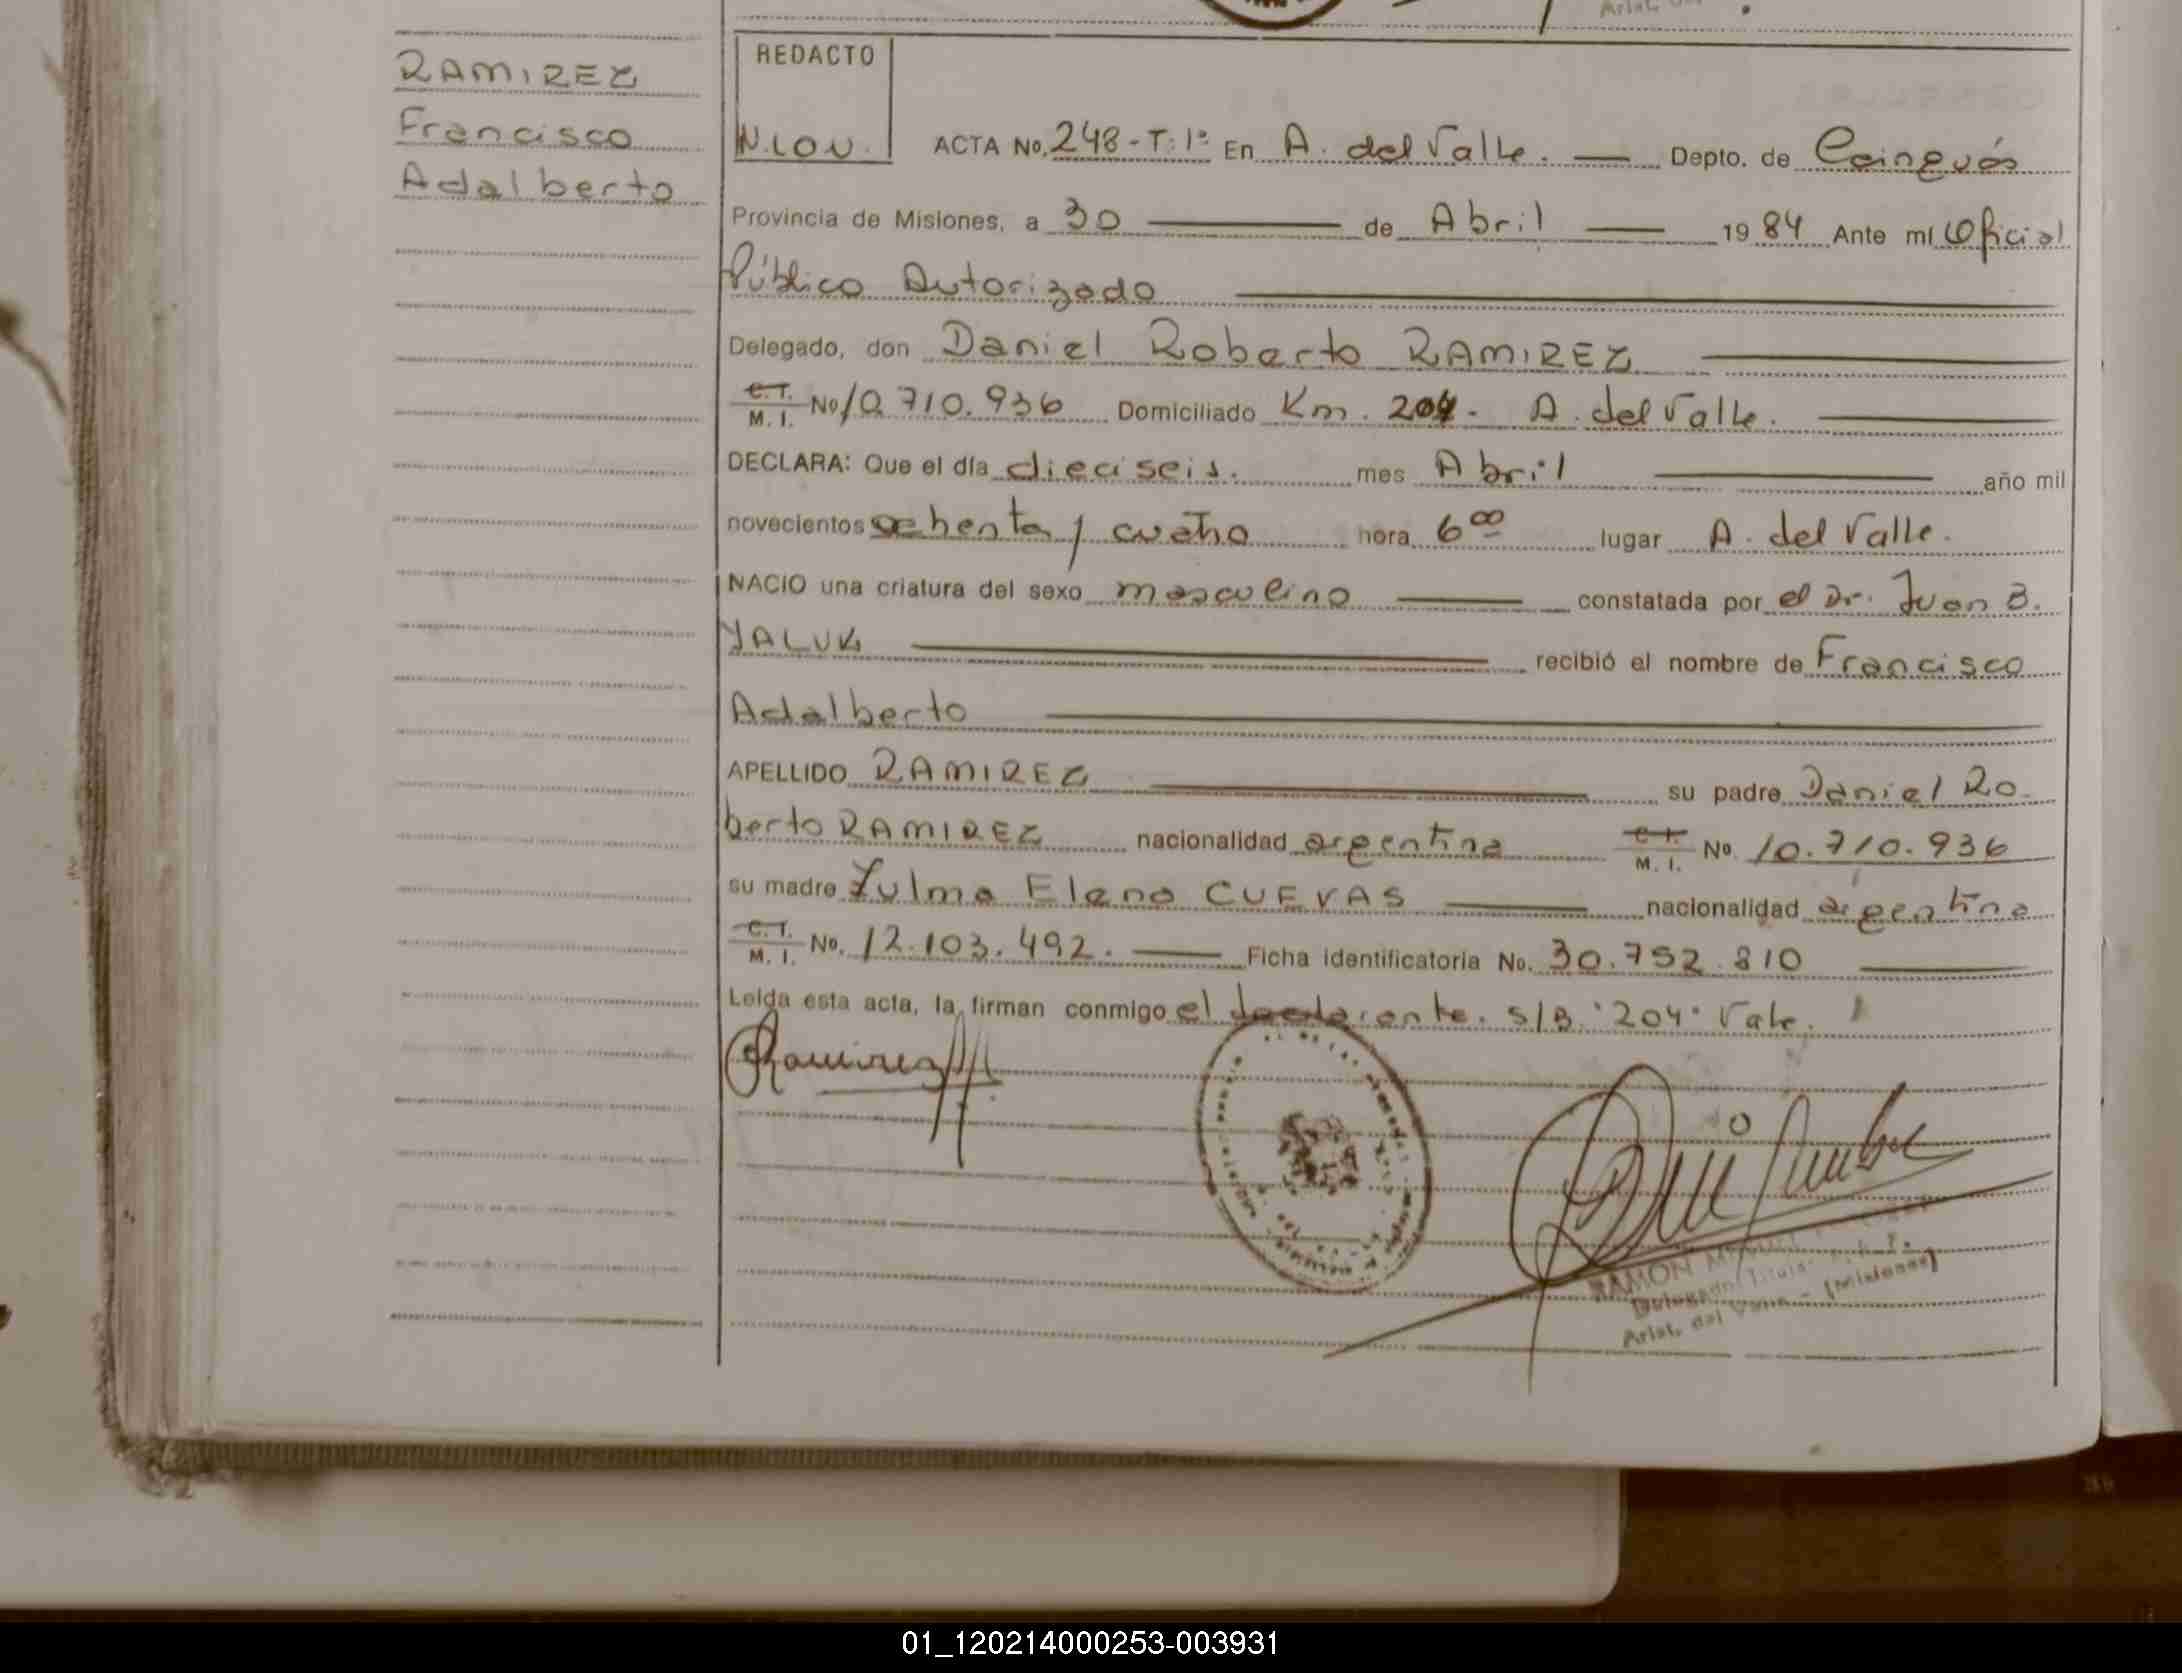 RAMIREZ
Francisco
Adalberto
REDACTO
ACTA No. 248-T:1º En A. del Valle. Depto. de Cainguás
Provincia de Misiones, a 30 de Abril 1984 Ante mí Oficial
Público Autorizado
Delegado, don Daniel Roberto RAMIREZ
C.I. M. I. No 10.710.936 Domiciliado Km. 204. A. del Valle.
DECLARA: Que el día dieciseis. mes Abril año mil
novecientos ochenta y cuatro hora 6 00 lugar A. del Valle.
NACIO una criatura del sexo masculino constatada por el Dr. Juan B.
YALUK recibió el nombre de Francisco
Adalberto
APELLIDO RAMIREZ su padre Daniel Ro
berto RAMIREZ nacionalidad argentina C.I. M. I. No. 10.710.936
su madre Zulma Elena CUEVAS nacionalidad argentina
C.I. M. I. No. 12.103.492. Ficha identificatoria No. 30.752.810
Leída esta acta, la firman conmigo el declarante. S/B "204" Vale.
Ramirez
RAMON
Delegado Titular
Arist. del Valle - (Misiones)
01_120214000253-003931